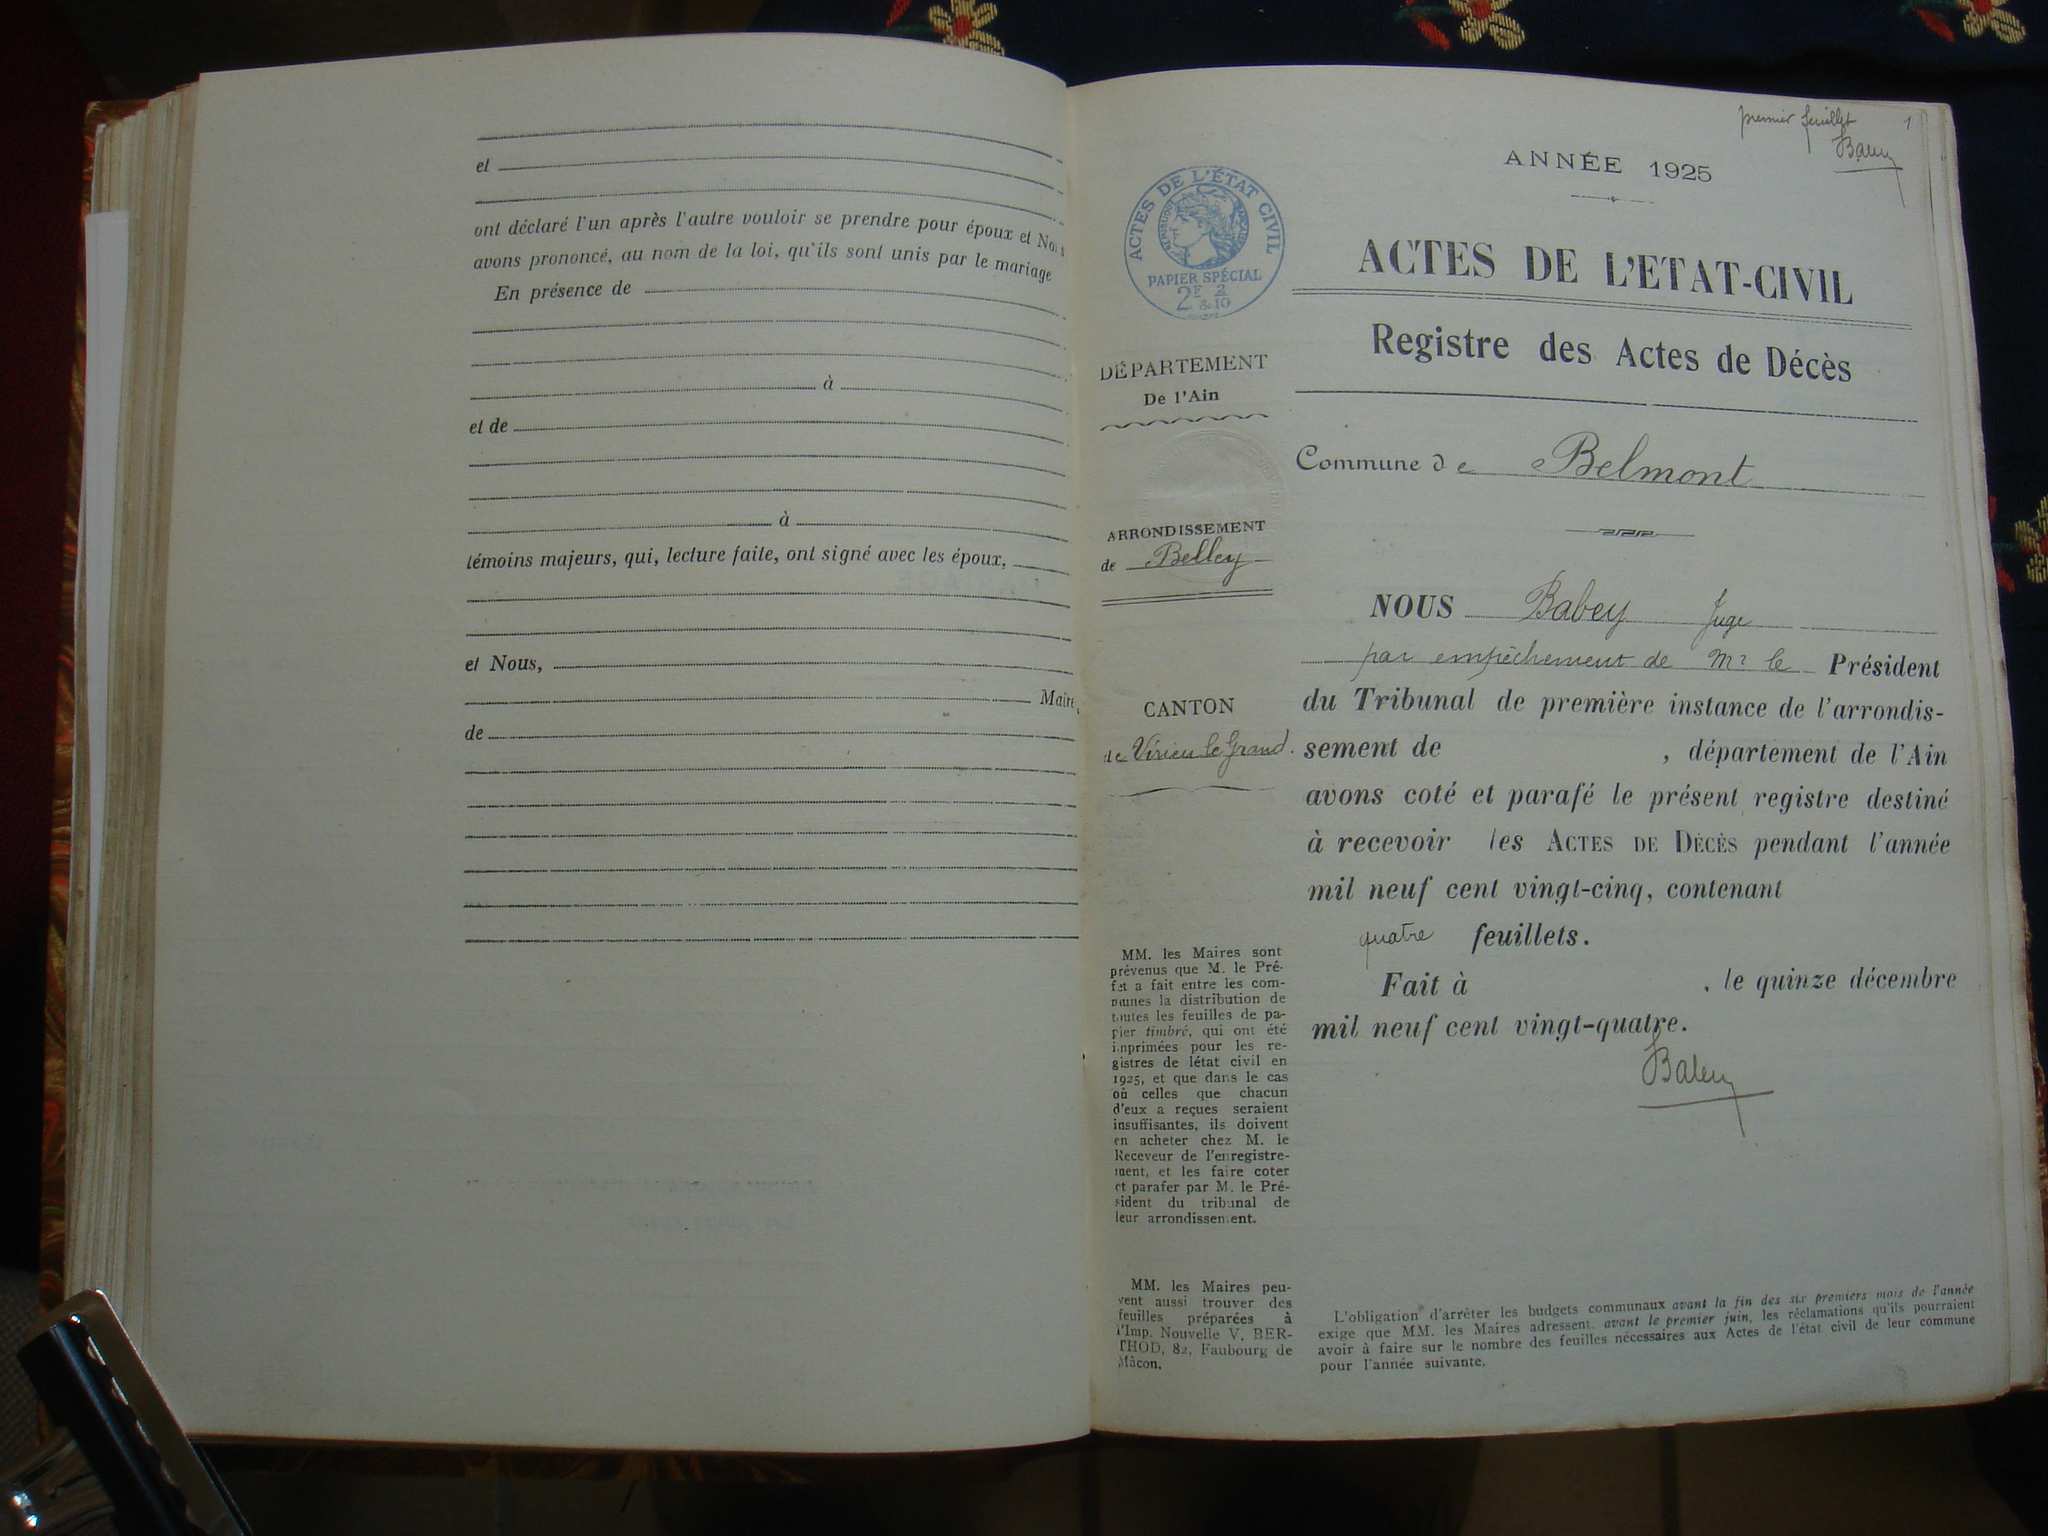 et
ont déclaré l'un après l'autre vouloir se prendre pour époux et Nous
avons prononcé, au nom de la loi, qu'ils sont unis par le mariage
En présence de
à
et de
à
témoins majeurs, qui, lecture faite, ont signé avec les époux,
et Nous,
Maire,
de
premier feuillet 1
Babey
ANNÉE 1925
ACTES DE L'ÉTAT CIVIL
RÉPUBLIQUE FRANÇAISE
PAPIER SPÉCIAL
2F &2/10
ACTES DE L'ETAT-CIVIL
Registre des Actes de Décès
DÉPARTEMENT
De l'Ain
Commune de Belmont
ARRONDISSEMENT
de Belley
CANTON
de Virieu le Grand.
NOUS Babey Juge
par empêchement de Mr le Président
du Tribunal de première instance de l'arrondis-
sement de , département de l'Ain
avons coté et parafé le présent registre destiné
à recevoir les ACTES DE DÉCÈS pendant l'année
mil neuf cent vingt-cinq, contenant
quatre feuillets.
Fait à , le quinze décembre
mil neuf cent vingt-quatre.
Babey
MM. les Maires sont
prévenus que M. le Pré-
fet a fait entre les com-
munes la distribution de
toutes les feuilles de pa-
pier timbré, qui ont été
imprimées pour les re-
gistres de létat civil en
1925, et que dans le cas
où celles que chacun
d'eux a reçues seraient
insuffisantes, ils doivent
en acheter chez M. le
Receveur de l'enregistre-
ment, et les faire coter
et parafer par M. le Pré-
sident du tribunal de
leur arrondissement.
MM. les Maires peu-
vent aussi trouver des
feuilles préparées à
l'Imp. Nouvelle V. BER-
THOD, 82, Faubourg de
Mâcon.
L'obligation d'arrêter les budgets communaux avant la fin des six premiers mois de l'année
exige que MM. les Maires adressent, avant le premier juin, les réclamations qu'ils pourraient
avoir à faire sur le nombre des feuilles nécessaires aux Actes de l'état civil de leur commune
pour l'année suivante.